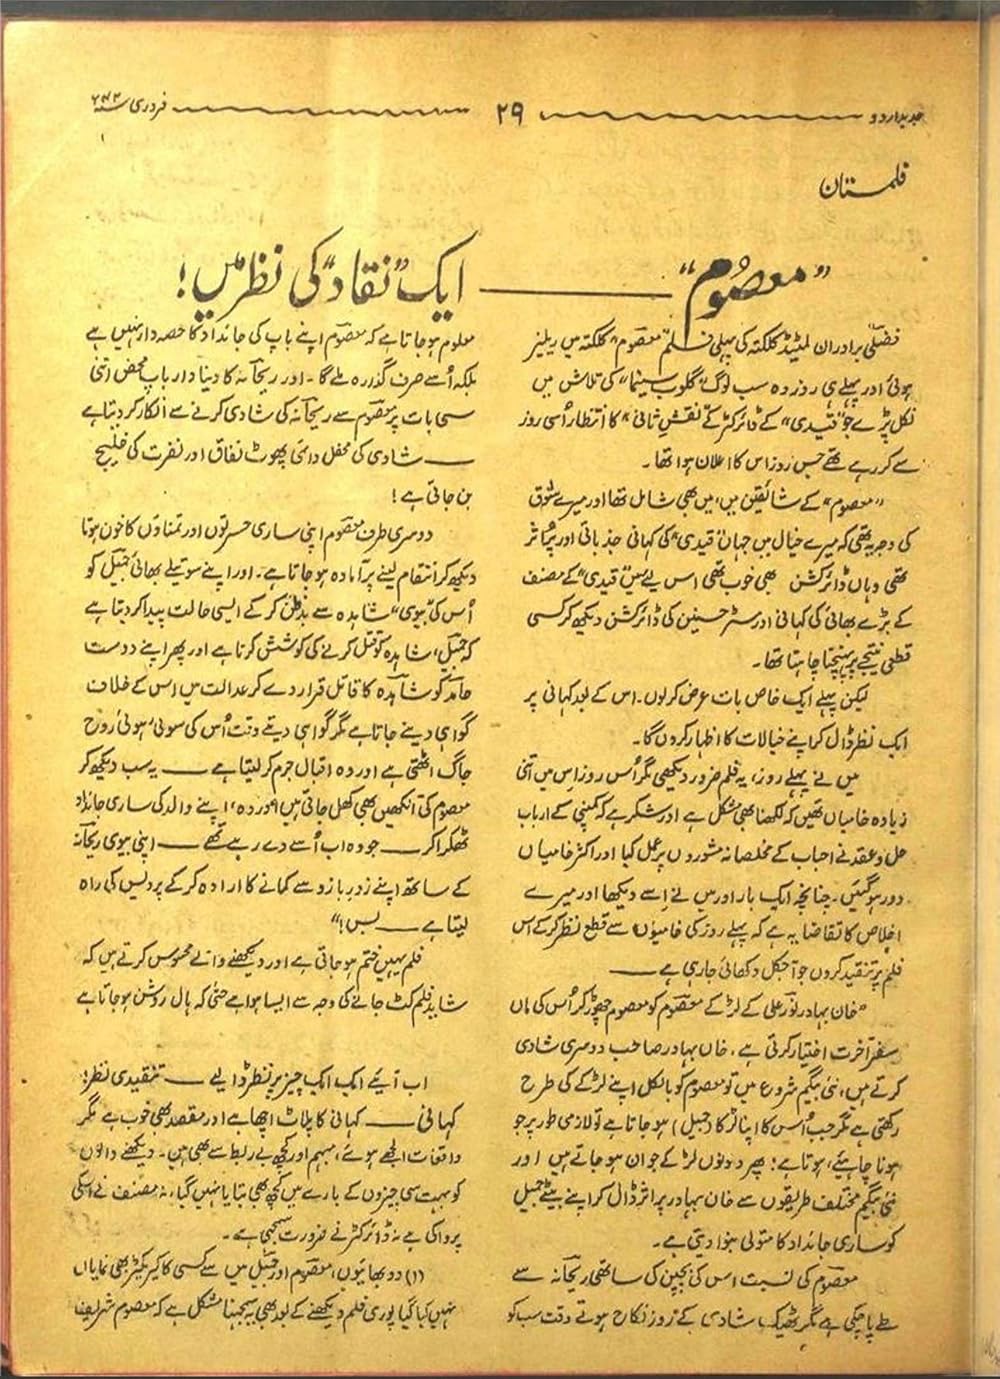 جدید اردو ۲۹ فروری سنہ ۴۲ء
فلمستان
"معصوم" ——— ایک "نقاد" کی نظر میں!
فضلی برادران لمیٹیڈ کلکتہ کی پہلی فلم "معصوم" کلکتہ میں ریلیز
ہوئی اور پہلے ہی روز وہ سب لوگ "گلوب سینما" کی تلاش میں
نکل پڑے جو "قیدی" کے ڈائرکٹر کے "نقش ثانی" کا انتظار اُسی روز
سے کر رہے تھے جس روز اس کا اعلان ہوا تھا۔
"معصوم" کے شائقین میں، میں بھی شامل تھا اور میرے شوق
کی وجہ یہ تھی کہ میرے خیال میں جہاں "قیدی" کی کہانی جذباتی اور پُر تاثر
تھی وہاں ڈائرکشن بھی خوب تھی اس لیے میں "قیدی" کے مصنف
کے بڑے بھائی کی کہانی اور مسٹر حسنین کی ڈائرکشن دیکھ کر کسی
قطعی نتیجے پر پہنچنا چاہتا تھا۔
لیکن پہلے ایک خاص بات عرض کر لوں۔ اس کے بعد کہانی پر
ایک نظر ڈال کر اپنے خیالات کا اظہار کروں گا۔
میں نے پہلے روز، یہ فلم ضرور دیکھی مگر اُس روز اس میں اتنی
زیادہ خامیاں تھیں کہ لکھنا بھی مشکل ہے اور شکر ہے کہ کمپنی کے ارباب
حل و عقد نے احباب کے مخلصانہ مشوروں پر عمل کیا اور اکثر خامیاں
دور ہو گئیں۔ چنانچہ ایک بار اور میں نے اسے دیکھا اور میرے
اخلاص کا تقاضا یہ ہے کہ پہلے روز کی خامیوں سے قطع نظر کر کے اس
فلم پر تنقید کروں جو آجکل دکھائی جا رہی ہے ———
"خان بہادر نور علی کے لڑکے معصوم کو معصوم چھوڑ کر اُس کی ماں
سفر آخرت اختیار کرتی ہے۔ خاں بہادر صاحب دوسری شادی
کرتے ہیں، نئی بیگم شروع میں تو معصوم کو بالکل اپنے لڑکے کی طرح
رکھتی ہے مگر جب اُس کا اپنا لڑکا (جمیل) ہو جاتا ہے تو لازمی طور پر جو
ہونا چاہیئے، ہوتا ہے؛ پھر دونوں لڑکے جوان ہو جاتے ہیں اور
نئی بیگم مختلف طریقوں سے خان بہادر پر اثر ڈال کر اپنے بیٹے جمیل
کو ساری جائداد کا متولی بنوا دیتی ہے۔
معصوم کی نسبت اس کی بچپن کی ساتھی ریحانہ سے
طے پا چکی ہے مگر ٹھیک شادی کے روز نکاح ہوتے وقت سب کو
معلوم ہو جاتا ہے کہ معصوم اپنے باپ کی جائداد کا حصہ دار نہیں ہے
بلکہ اُسے صرف گذارہ ملے گا۔ اور ریحانہ کا دنیا دار باپ محض اتنی
سی بات پر معصوم سے ریحانہ کی شادی کرنے سے انکار کر دیتا ہے
——— شادی کی محفل دائمی پھوٹ نفاق اور نفرت کی خلیج
بن جاتی ہے!
دوسری طرف معصوم اپنی ساری حسرتوں اور تمناؤں کا خون ہوتا
دیکھ کر انتقام لینے پر آمادہ ہو جاتا ہے۔ اور اپنے سوتیلے بھائی جمیل کو
اُس کی بیوی "شاہدہ" سے بدظن کر کے ایسی حالت پیدا کر دیتا ہے
کہ جمیل، شاہدہ کو قتل کرنے کی کوشش کرتا ہے اور پھر اپنے دوست
حامد کو شاہدہ کا قاتل قرار دے کر عدالت میں اس کے خلاف
گواہی دینے جاتا ہے مگر گواہی دیتے وقت اُس کی سوئی ہوئی روح
جاگ اٹھتی ہے اور وہ اقبال جرم کر لیتا ہے ——— یہ سب دیکھ کر
معصوم کی آنکھیں بھی کھل جاتی ہیں اور وہ، اپنے والد کی ساری جائداد
ٹھکرا کر ——— جو وہ اب اُسے دے رہے تھے ——— اپنی بیوی ریحانہ
کے ساتھ اپنے زور بازو سے کمانے کا ارادہ کر کے پردیس کی راہ
لیتا ہے ——— بس!"
فلم یہیں ختم ہو جاتی ہے اور دیکھنے والے محسوس کرتے ہیں کہ
شاید فلم کٹ جانے کی وجہ سے ایسا ہوا ہے حتٰی کہ ہال روشن ہو جاتا ہے
اب آیئے ایک ایک چیز پر نظر ڈالیے ——— تنقیدی نظر:
کہانی ——— کہانی کا پلاٹ اچھا ہے اور مقصد بھی خوب ہے مگر
واقعات الجھے ہوئے، مبہم اور کچھ بے ربط سے بھی ہیں۔ دیکھنے والوں
کو بہت سی چیزوں کے بارے میں کچھ بھی بتایا نہیں گیا، نہ مصنف نے اسکی
پروا کی ہے نہ ڈائرکٹر نے ضرورت سمجھی ہے۔
(۱) دو بھائیوں، معصوم اور جمیل میں سے کسی کا کیریکٹر بھی نمایاں
نہیں کیا گیا پوری فلم دیکھنے کے بعد بھی یہ سمجھنا مشکل ہے کہ معصوم شریف